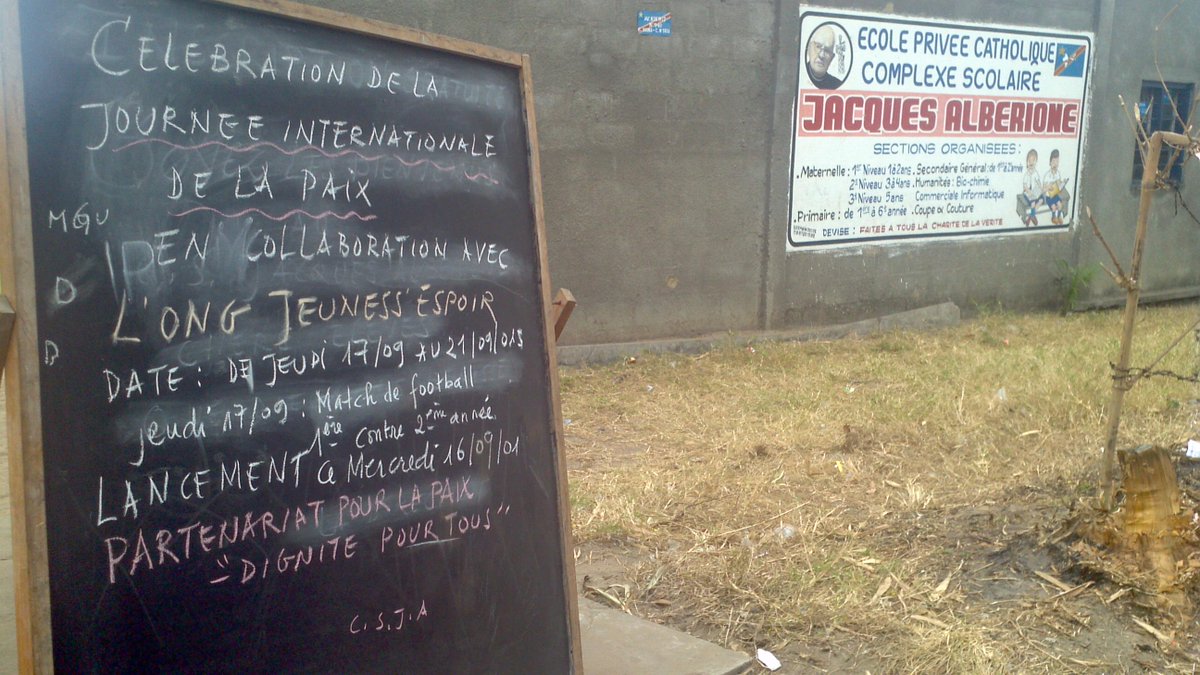 CELEBRATION DE LA
JOURNEE INTERNATIONALE
DE LA PAIX
EN COLLABORATION AVEC
L'ONG JEUNESS'ESPOIR
DATE : DE JEUDI 17/09 AU 21/09/015
jeudi 17/09 : Match de football
1ère contre 2ème année.
LANCEMENT Ce Mercredi 16/09/01
PARTENARIAT POUR LA PAIX
"DIGNITE POUR TOUS"
C.S.J.A
MGU
D
D
ECOLE PRIVEE CATHOLIQUE
COMPLEXE SCOLAIRE
JACQUES ALBERIONE
SECTIONS ORGANISEES :
Maternelle : 1er Niveau 1à2ans
2e Niveau 3à4ans
3e Niveau 5ans
Primaire : de 1ère à 6e année
Secondaire Général : de 1à2e année
Humanités : Bio-chimie
Commerciale Informatique
Coupe et Couture
DEVISE : FAITES A TOUS LA CHARITE DE LA VERITE